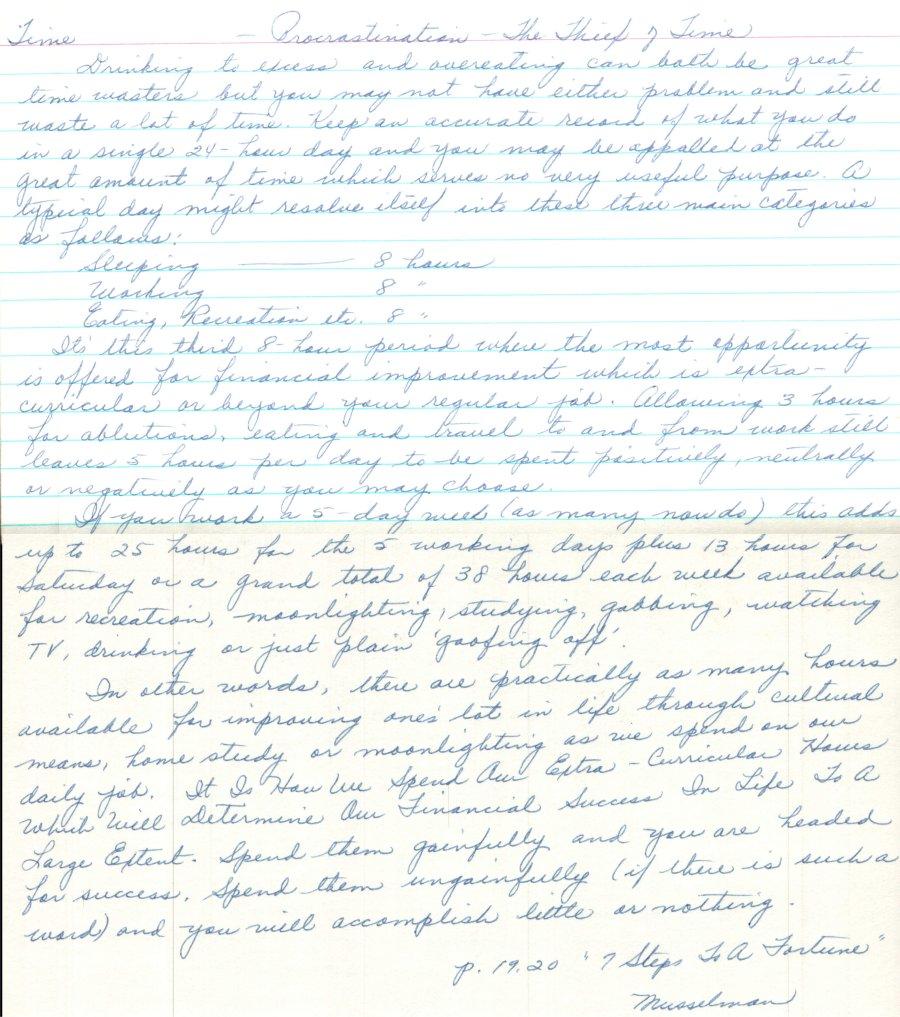 Time — Procrastination — The Thief of Time
Drinking to excess and overeating can both be great
time wasters but you may not have either problem and still
waste a lot of time. Keep an accurate record of what you do
in a single 24-hour day and you may be appalled at the
great amount of time which serves no very useful purpose. A
typical day might resolve itself into these three main categories
as follows:
Sleeping —— 8 hours
Working 8 "
Eating, Recreation etc. 8 "
It's this third 8-hour period where the most opportunity
is offered for financial improvement which is extra-
curricular or beyond your regular job. Allowing 3 hours
for ablutions, eating and travel to and from work still
leaves 5 hours per day to be spent positively, neutrally
or negatively as you may choose.
If you work a 5-day week (as many now do) this adds
up to 25 hours for the 5 working days plus 13 hours for
Saturday or a grand total of 38 hours each week available
for recreation, moonlighting, studying, gabbing, watching
TV, drinking or just plain 'goofing off'.
In other words, there are practically as many hours
available for improving one's lot in life through cultural
means, home study or moonlighting as we spend on our
daily job. It Is How We Spend Our Extra-Curricular Hours
Which Will Determine Our Financial Success In Life To A
Large Extent. Spend them gainfully and you are headed
for success. Spend them ungainfully (if there is such a
word) and you will accomplish little or nothing.
p. 19.20 "7 Steps To A Fortune"
Musselman